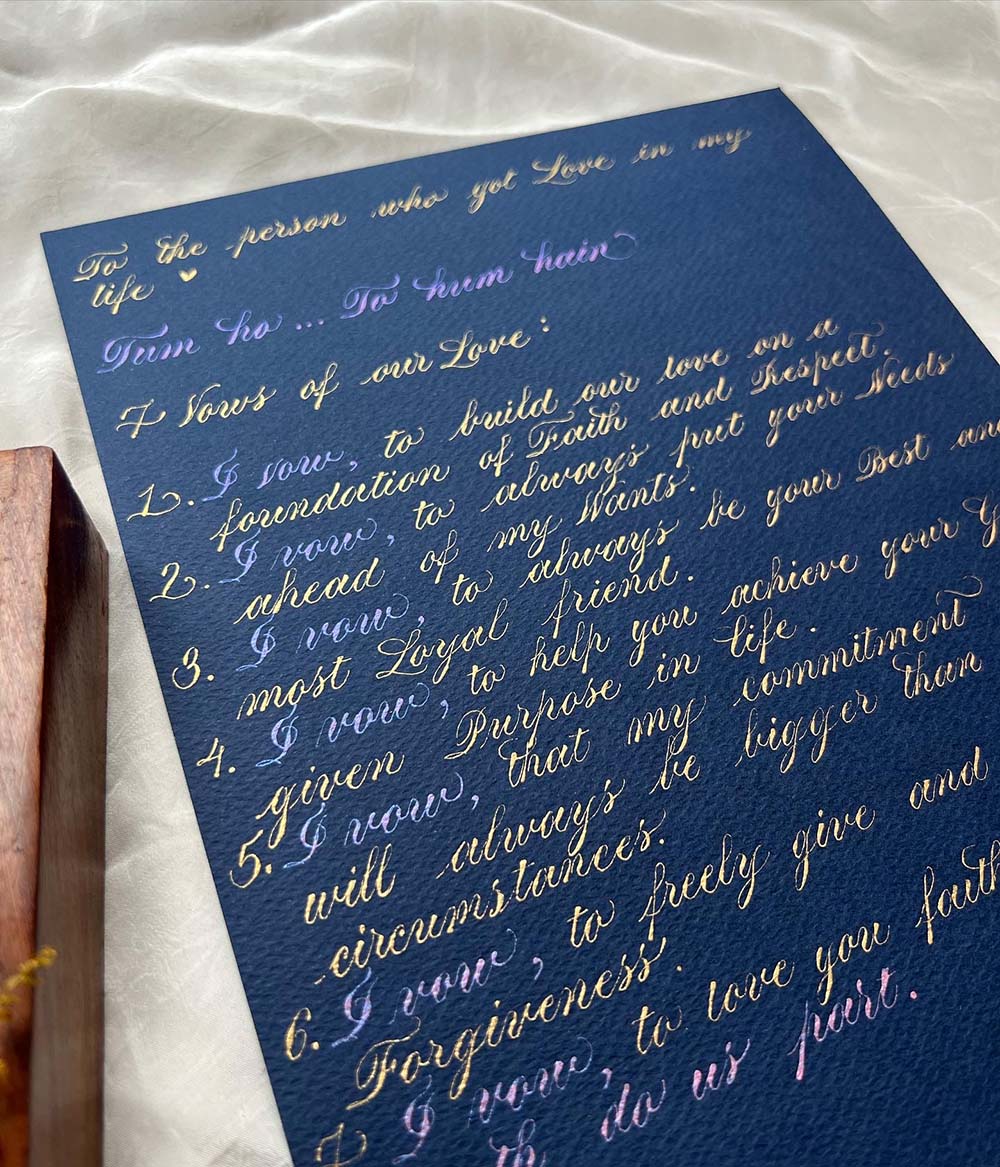 To the person who got Love in my
life
Tum ho... To hum hain
7 Vows of our Love:
1. I vow, to build our love on a
foundation of Faith and Respect.
2. I vow, to always put your Needs
ahead of my Wants.
3. I vow, to always be your Best and
most Loyal friend.
4. I vow, to help you achieve your
given Purpose in life.
5. I vow, that my commitment
will always be bigger than
circumstances.
6. I vow, to freely give and
Forgiveness.
7 I vow, to love you
do us part.